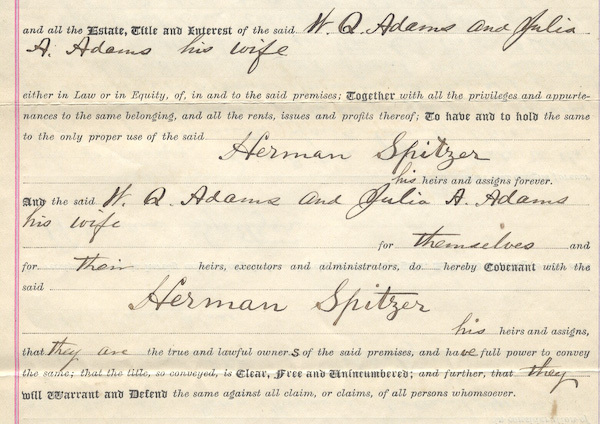 and all the Estate, Title and Interest of the said W. Q. Adams and Julia
A. Adams his wife
either in Law or in Equity, of, in and to the said premises; Together with all the privileges and appurte-
nances to the same belonging, and all the rents, issues and profits thereof; To have and to hold the same
to the only proper use of the said
Herman Spitzer
his heirs and assigns forever.
And the said W. Q. Adams and Julia A. Adams
his wife
for themselves and
for their heirs, executors and administrators, do hereby Covenant with the
said
Herman Spitzer
his heirs and assigns,
that they are the true and lawful owners of the said premises, and have full power to convey
the same; that the title, so conveyed, is Clear, Free and Unincumbered; and further, that they
will Warrant and Defend the same against all claim, or claims, of all persons whomsoever.